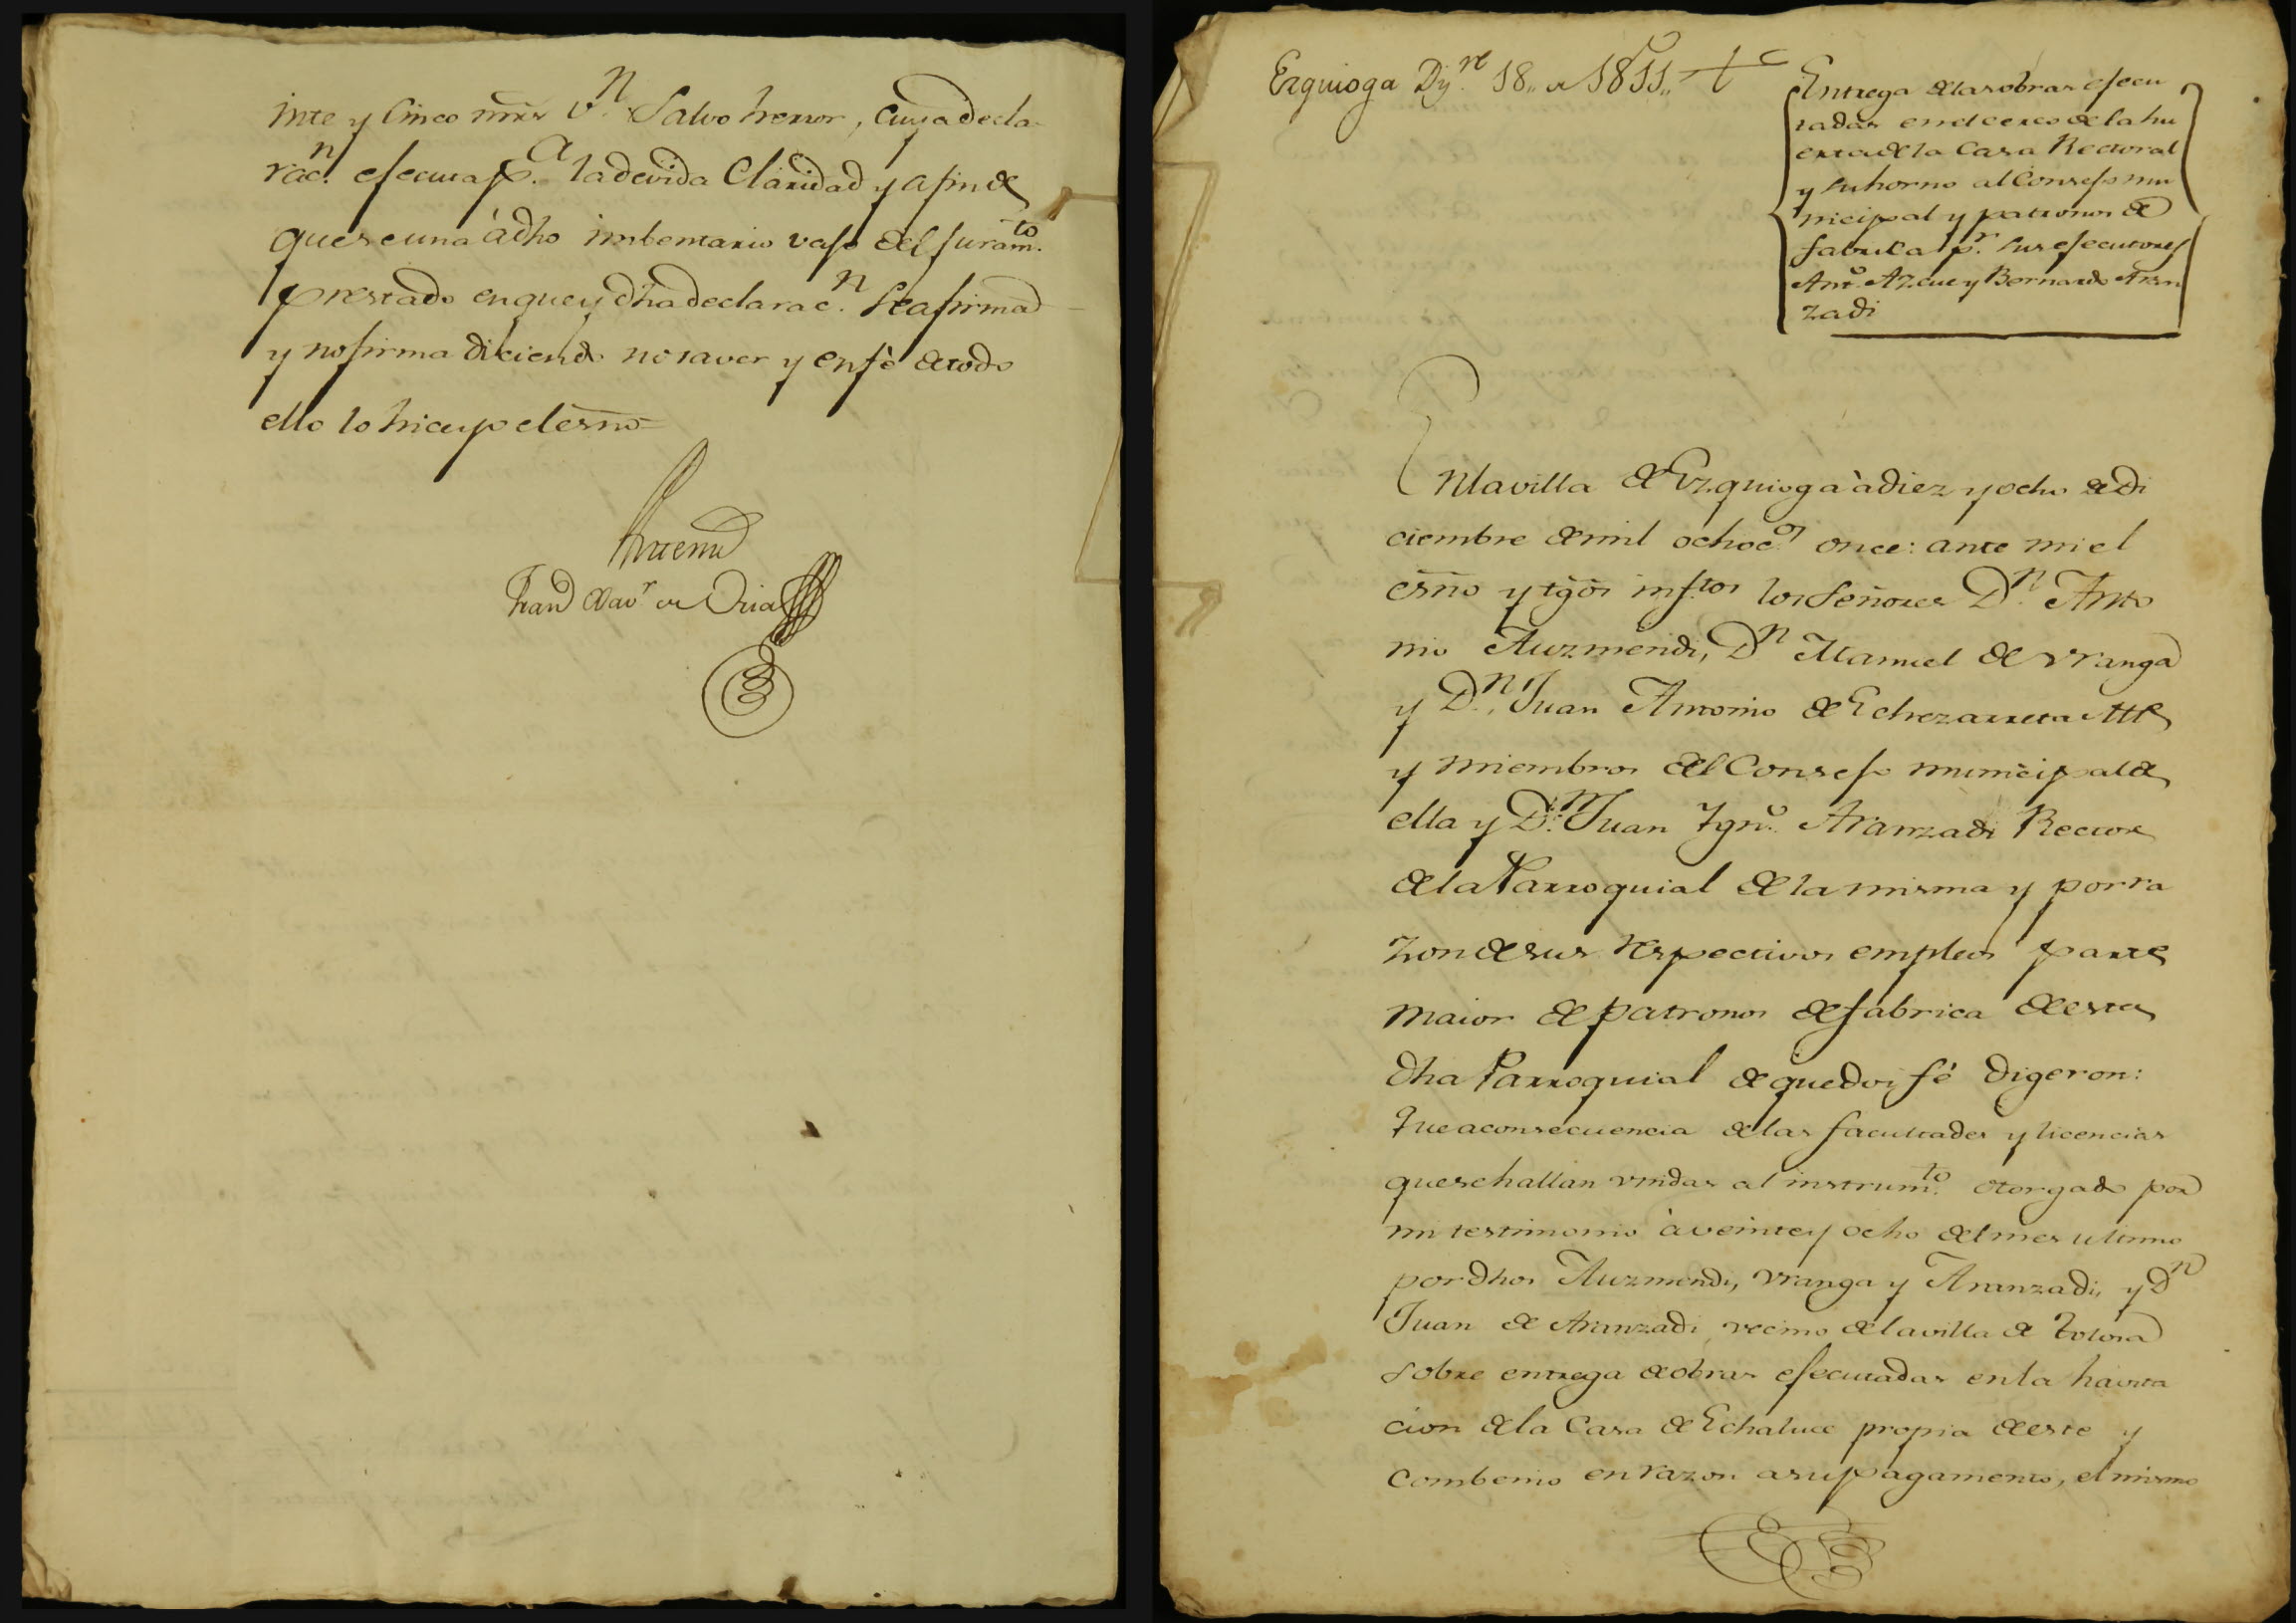 inte y Cinco mrs v.n Salvo herror, cuya decla-
rac.n efecuta p.a la devida Claridad y afin de
que se una à dho imbentario vajo del juram.to
prestado en que y dha declarac.n se afirma
y no firma diciendo no saver y en fè de todo
ello lo hice yo el esno=
Antemi
Fran.co Xav.r de Oria
Ezquioga Dz.re 18,, de 1811,,
Entrega de las obras ejecu
tadas en el cerco de la hu
erta de la Casa Rectoral
y su horno al Consejo mu
nicipal y patronos de
fabrica p.r sus ejecutores
Ant.o Azcue y Bernardo Aran
zadi
En la villa de Ezquioga à diez y ocho de Di
ciembre de mil ochoc.os once: ante mi el
esno y tgos infstos los Señores D.n Anto
nio Auzmendi, D.n Manuel de Vranga
y D.n Juan Antonio de Echezarreta Alle
y miembros del Consejo municipal de
ella y D.n Juan Ign.o Aranzadi Rector
de la Parroquial de la misma y por ra
zon de sus respectivos empleos parte
maior de patronos de fabrica de esta
dha Parroquial de que doi fé digeron:
Que a consecuencia de las facultades y licencias
que se hallan vnidas al instrum.to otorgado por
mi testimonio à veinte y ocho del mes ultimo
por dhos Auzmendi, Vranga y Aranzadi, y D.n
Juan de Aranzadi vecino de la villa de Tolosa
sobre entrega de obras efecutadas en la havita
cion de la Casa de Echaluce propia de este y
Combenio en razon a su pagamento, el mismo